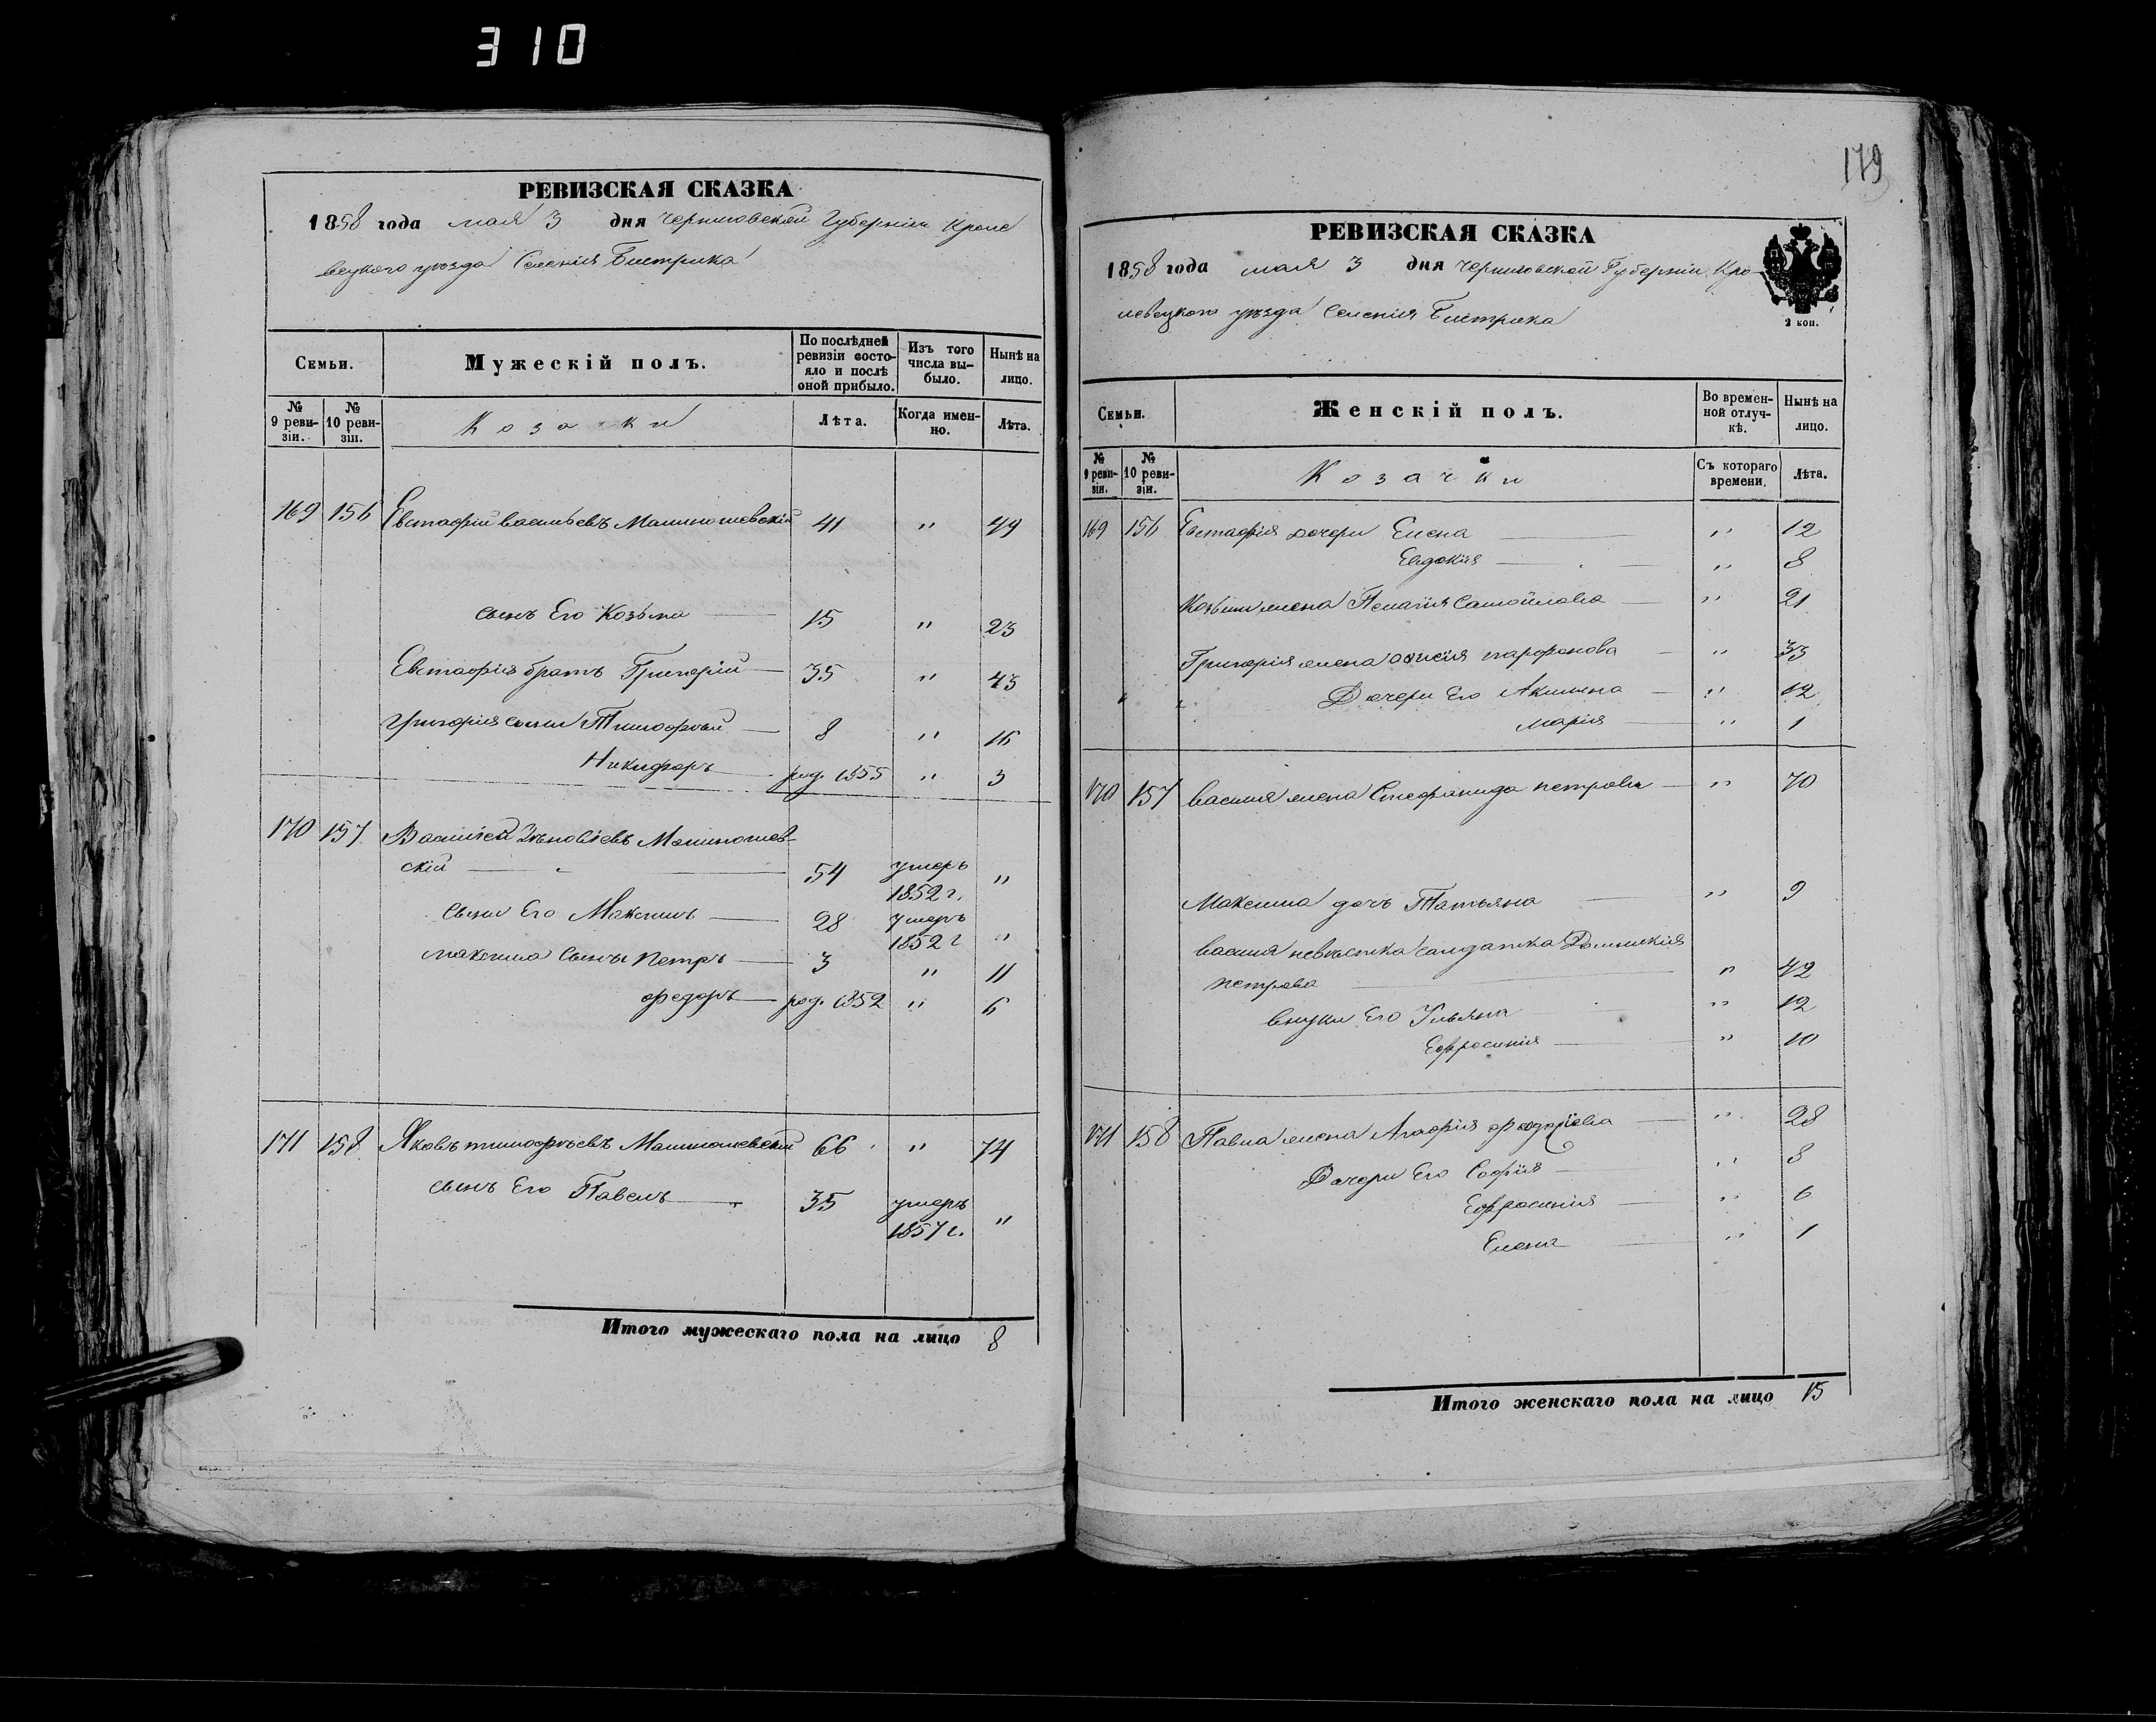 310
РЕВИЗСКАЯ СКАЗКА
1858 года мая 3 дня Черниговской Губерніи Кроле
вецкого уѣзда Селенія Бистрика
Семьи.
Мужескій полъ.
По послѣдней ревизіи состояло и послѣ оной прибыло.
Изъ того числа выбыло.
Нынѣ на лицо.
№ 9 ревизіи.
№ 10 ревизіи.
Козаки
Лѣта.
Когда именно.
Лѣта.
169 156 Евстафій васильевъ Малиношевскій 41 " 49
сынъ Его Козьма 15 " 23
Евстафія братъ Григорій 35 " 43
Григорія сыни Тимофѣй 8 " 16
Никифоръ род. 1855 " 3
170 157 Василій Зѣновіевъ Малиношев-
скій 54 умеръ 1852 г. "
сыни Его Максимъ 28 умеръ 1852 г "
максима сыны Петръ 3 " 11
федоръ род. 1852 " 6
171 158 Яковъ тимофѣевъ Малиношевскій 66 " 74
сынъ Его Павелъ 35 умеръ 1857 г. "
Итого мужескаго пола на лицо 8
179
РЕВИЗСКАЯ СКАЗКА
2 коп.
1858 года мая 3 дня Черниговской Губерніи Кро-
левецкого уѣзда Селенія Бистрика
Семьи.
Женскій полъ.
Во временной отлучкѣ.
Нынѣ на лицо.
№ 9 ревизіи.
№ 10 ревизіи.
Козачки
Съ котораго времени.
Лѣта.
169 156 Евстафія дочери Елена " 12
Евдокия " 8
Козьми жена Пелагія Самойлова " 21
Григорія жена парфенова " 33
Дочери Его Акилина " 12
марія " 1
170 157 василія жена Стефанида петрова " 70
Максима дочь Татьяна " 9
василя невѣстка салдатка Домникія
петрова " 42
внуки Его Ульяна " 12
Ефросинія " 10
171 158 Павла жена Агафія " 28
Дочери Его Софія " 8
Ефросинія " 6
Елена " 1
Итого женскаго пола на лицо 15